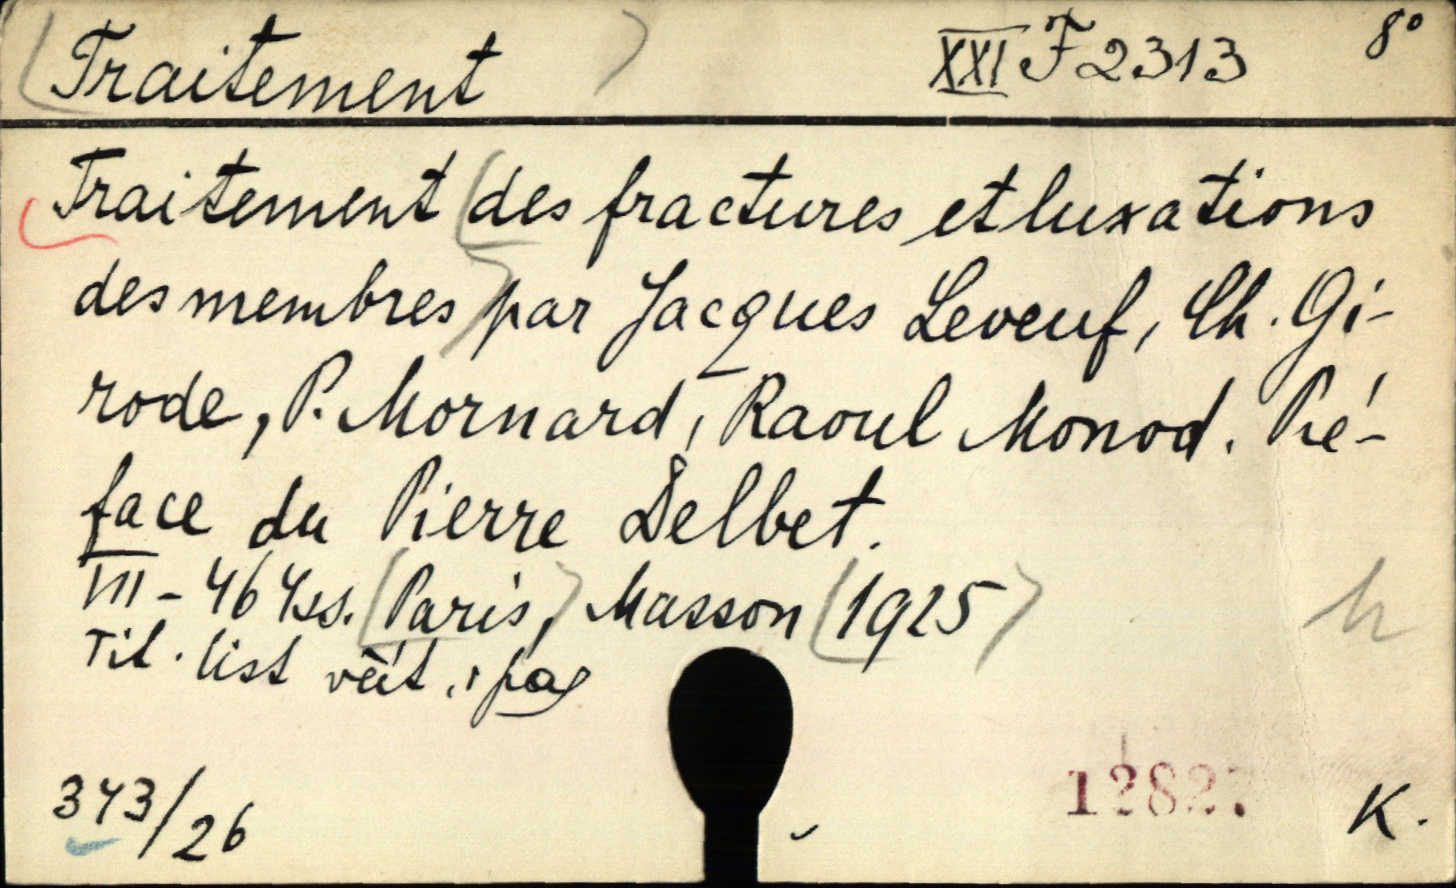 (Traitement) XXI F 2313 8°
Traitement (des fractures et luxations
des membres) par Jacques Leveuf, Ch. Gi-
rode, P. Mornard, Raoul Monod. Pré-
face du Pierre Delbet.
VIII - 464 ss. (Paris,) Masson (1925)
Tit. list
h
343/26
1282
K.